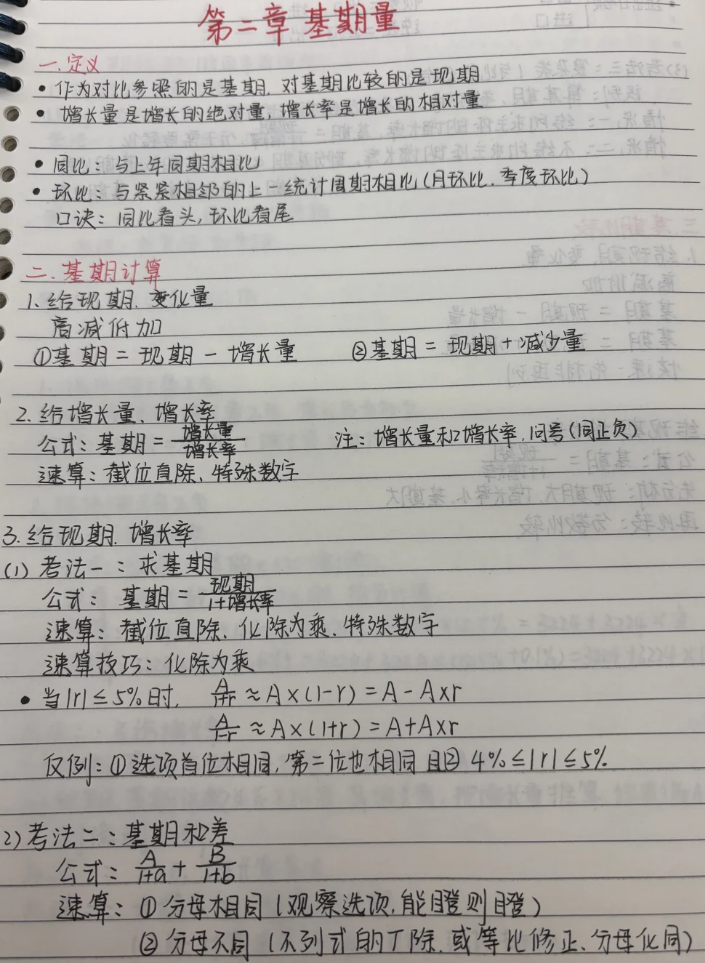 第二章 基期量
一.定义
• 作为对比参照的是基期,对基期比较的是现期
• 增长量是增长的绝对量,增长率是增长的相对量
• 同比:与上年同期相比
• 环比:与紧紧相邻的上一统计周期相比(月环比、季度环比)
口诀:同比看头,环比看尾
二.基期计算
1.给现期、变化量
高减低加
①基期 = 现期 - 增长量 ②基期 = 现期 + 减少量
2.给增长量、增长率
公式:基期 = 增长量/增长率 注:增长量和增长率,同号(同正负)
速算:截位直除、特殊数字
3.给现期、增长率
(1) 考法一:求基期
公式:基期 = 现期/1+增长率
速算:截位直除、化除为乘、特殊数字
速算技巧:化除为乘
• 当|r|≤5%时, A/1+r ≈ A×(1-r) = A-A×r
A/1-r ≈ A×(1+r) = A+A×r
仅例:①选项首位相同,第二位也相同 且② 4%≤|r|≤5%
2) 考法二:基期和差
公式: A/1+a + B/1+b
速算:① 分母相同(观察选项,能瞪则瞪)
② 分母不同(不列式的丁除、或等比修正、分母化同)